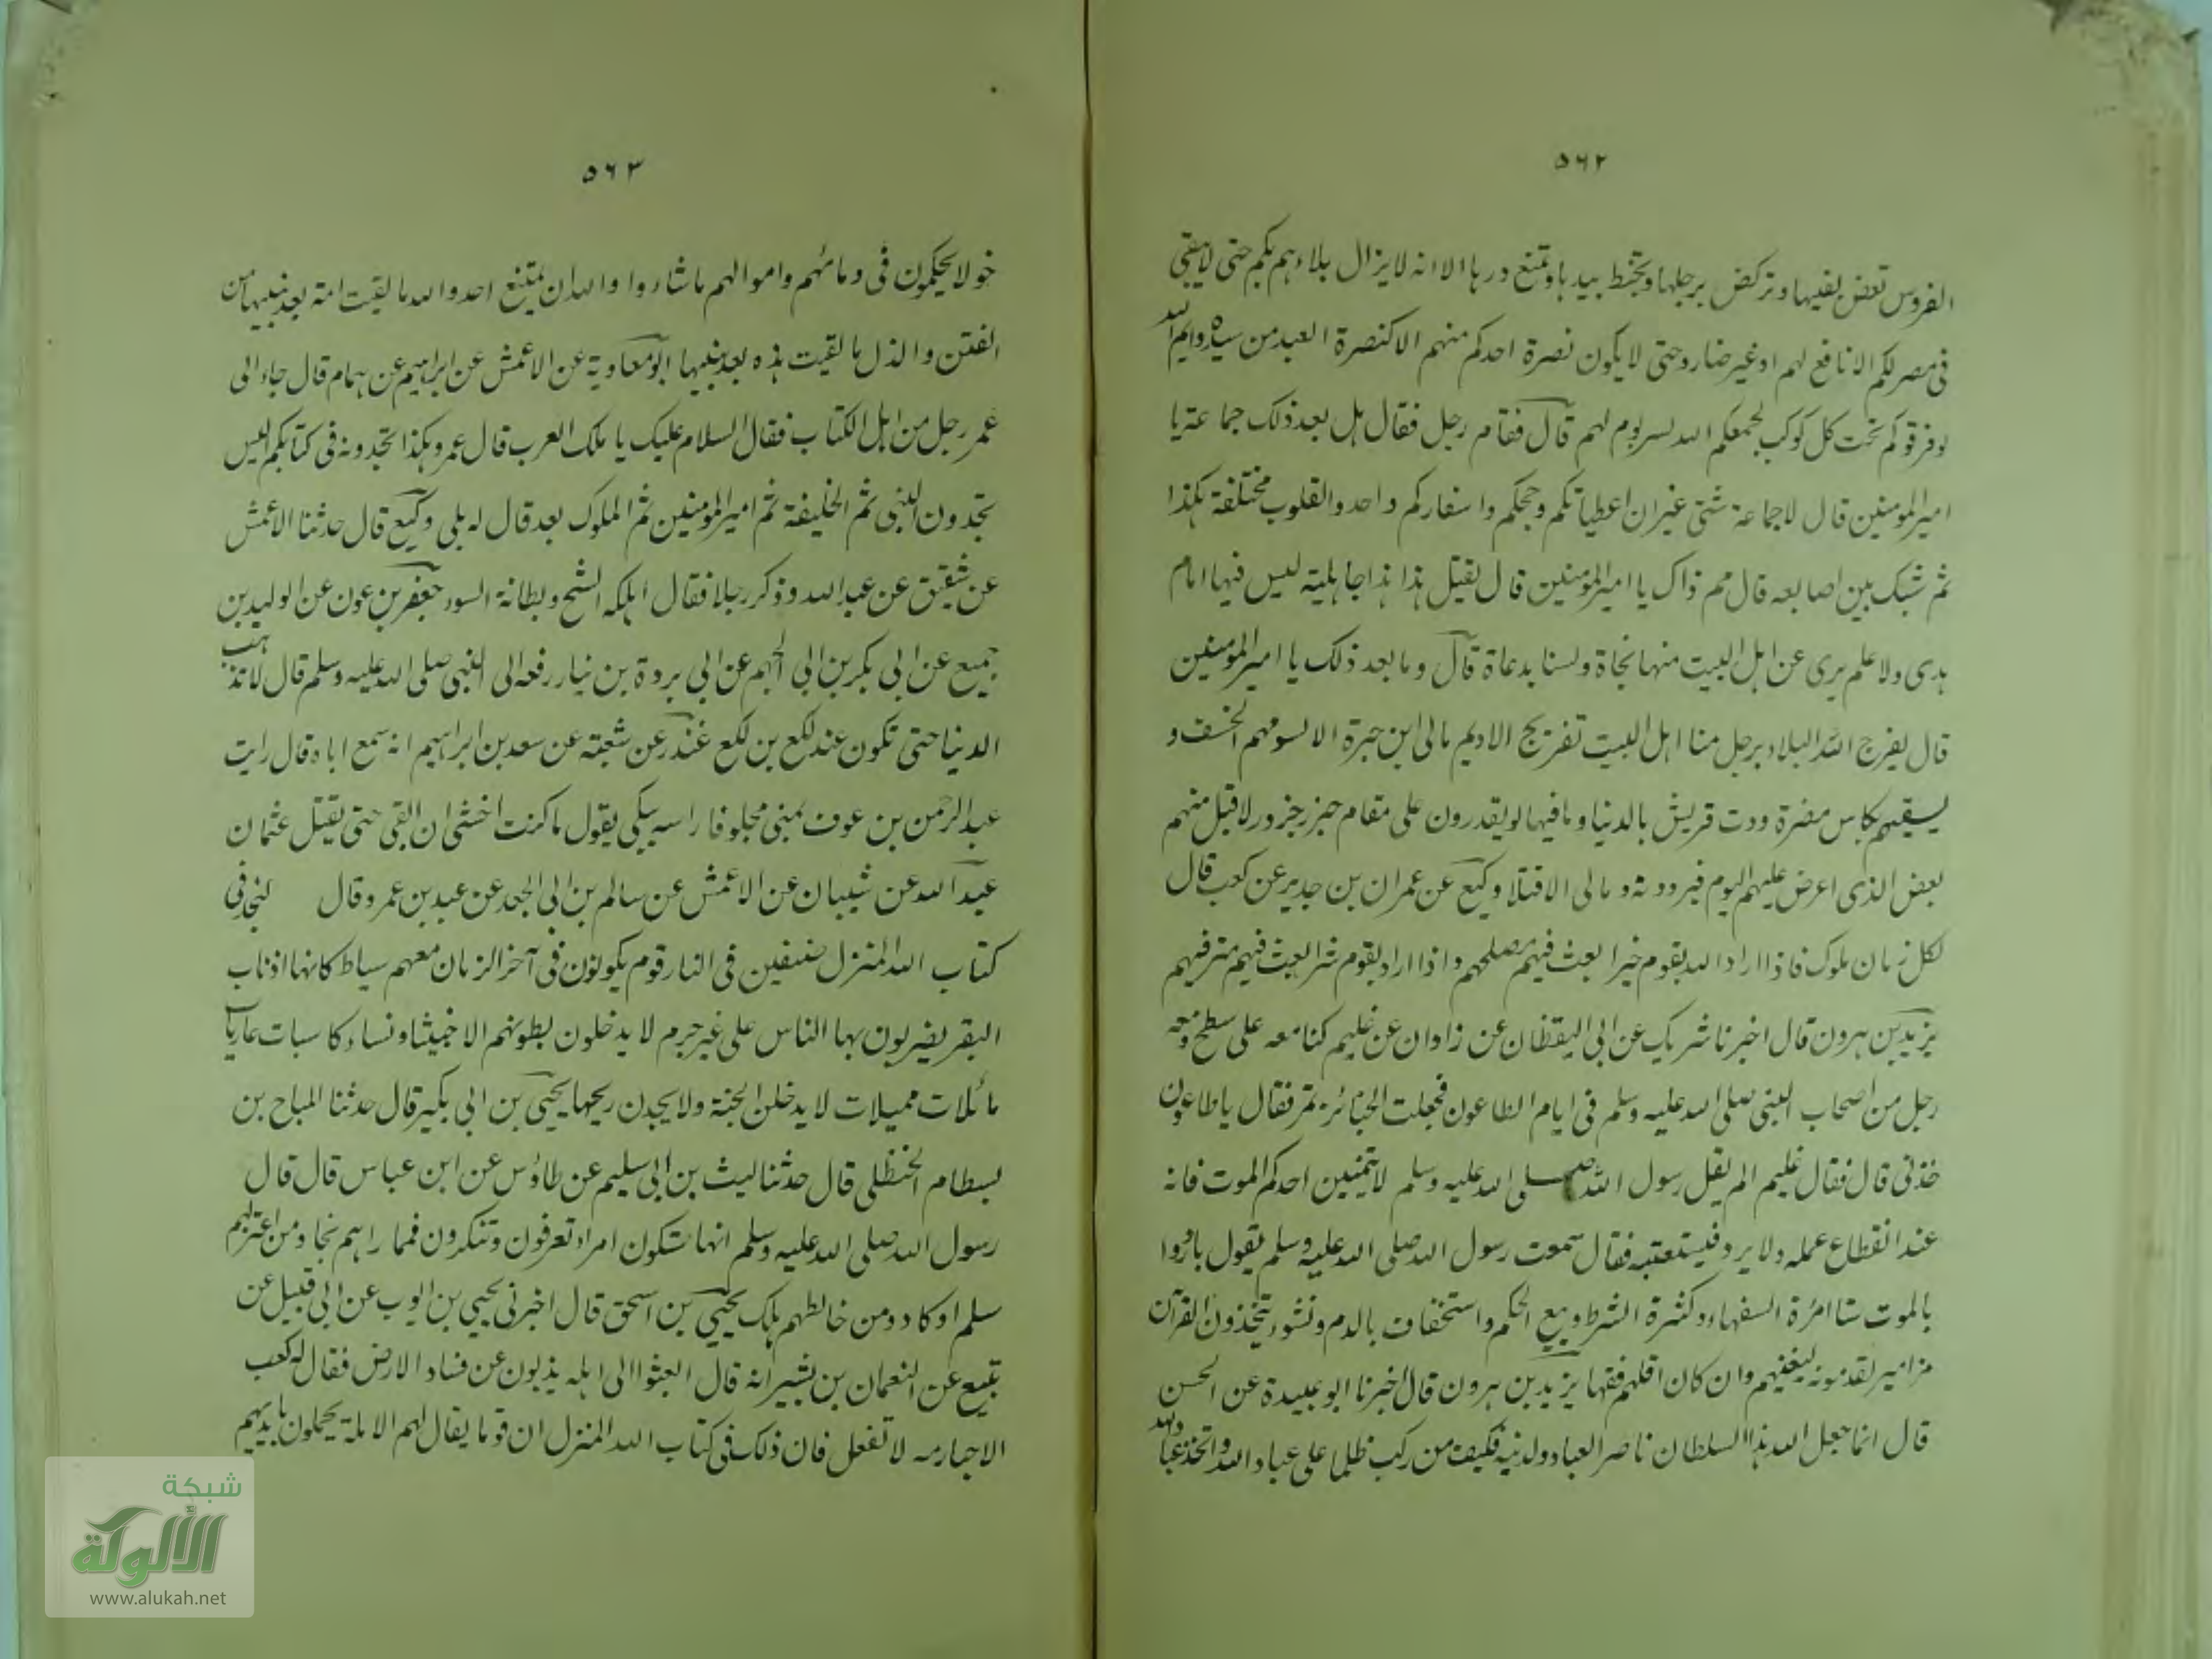 ٥٦٢
الضروس تعض بفيها وتركض برجلها وتخبط بيدها وتمنع درها الا انه لا يزال بلاءهم بكم حتى لا يبقى
فى مصر لكم الا نافع لهم او غير ضار وحتى لا يكون نصرة احدكم منهم الا كنصرة العبد من سيده وايم الله
لو فرقوكم تحت كل كوكب لجمعكم الله لسر يوم لهم قال فقام رجل فقال هل بعد ذلك جماعة يا
امير المومنين قال لا جماعة شتى غير ان اعطياتكم وحجكم واسفاركم واحد والقلوب مختلفة هكذا
ثم شبك بين اصابعه قال مم ذاك يا امير المومنين قال يقتل هذا هذا جاهلية ليس فيها امام
هدى ولا علم يرى نحن اهل البيت منها نجاة ولسنا بدعاة قال وما بعد ذلك يا امير المومنين
قال يفرج الله البلاء برجل منا اهل البيت تفريج الاديم بابى ابن خيرة الا يسومهم الخسف و
يسقيهم بكاس مصبرة ودت قريش بالدنيا وما فيها لو يقدرون على مقام جزر جزور لاقبل منهم
بعض الذى اعرض عليهم اليوم فيردونه ويابى الا قتلا وكيع عن عمران بن حدير عن كعب قال
لكل زمان ملوك فاذا اراد الله بقوم خيرا بعث فيهم مصلحهم واذا اراد بقوم شرا بعث فيهم مترفيهم
يزيد بن هرون قال اخبرنا شريك عن ابى اليقظان عن زاذان عن عليم كنا معه على سطح ومعه
رجل من اصحاب النبى صلى الله عليه وسلم فى ايام الطاعون فجعلت الجنائز تمر فقال يا طاعون
خذنى قال فقال عليم الم يقل رسول الله صلى الله عليه وسلم لا يتمنين احدكم الموت فانه
عند انقطاع عمله ولا يرد فيستعتبه فقال سمعت رسول الله صلى الله عليه وسلم يقول بادروا
بالموت ستا امرة السفهاء وكثرة الشرط وبيع الحكم واستخفاف بالدم ونشوء يتخذون القرآن
مزامير يقدمونه ليغنيهم وان كان اقلهم فقها يزيد بن هرون قال اخبرنا ابو عبيدة عن الحسن
قال انما جعل الله هذا السلطان ناصر العباد ولدينه فكيف من ركب ظلما على عباد الله واتخذ عباد الله
٥٦٣
خولا يحكمون فى دمائهم واموالهم ما شاءوا والله ان يمتنع احد والله ما لقيت امة بعد نبيها من
الفتن والذل ما لقيت هذه بعد نبيها ابو معاوية عن الاعمش عن ابراهيم عن همام قال جاء الى
عمر رجل من اهل الكتاب فقال السلام عليك يا ملك العرب قال عمر وهكذا تجدونه فى كتابكم ليس
تجدون النبى ثم الخليفة ثم امير المومنين ثم الملوك بعد قال له بلى وكيع قال حدثنا الاعمش
عن شقيق عن عبد الله وذكر رجلا فقال اهلكه الشح وبطانة السوء جعفر بن عون عن الوليد بن
جميع عن ابى بكر بن ابى الجهم عن ابى بردة بن نيار رفعه الى النبى صلى الله عليه وسلم قال لا تذهب
الدنيا حتى تكون عند لكع بن لكع غندر عن شعبة عن سعد بن ابراهيم انه سمع اباه قال رايت
عبد الرحمن بن عوف بمنى محلوقا راسه يبكى يقول ما كنت اخشى ان ابقى حتى يقتل عثمان
عبيد الله عن شيبان عن الاعمش عن سالم بن ابى الجعد عن عبد بن عمرو قال لنجد فى
كتاب الله المنزل صنفين فى النار قوم يكونون فى آخر الزمان معهم سياط كانها اذناب
البقر يضربون بها الناس على غير جرم لا يدخلون بطونهم الا خبيثا ونساء كاسيات عاريات
مائلات مميلات لا يدخلن الجنة ولا يجدن ريحها يحيى بن ابى بكير قال حدثنا الهياج بن
بسطام الحنظلى قال حدثنا ليث بن ابى سليم عن طاؤس عن ابن عباس قال قال
رسول الله صلى الله عليه وسلم انها ستكون امراء تعرفون وتنكرون فمما راهم نجا ومن اعتزلهم
سلم او كاد ومن خالطهم هلك يحيى بن اسحق قال اخبرنى يحيى بن ايوب عن ابى قبيل عن
تبيع عن النعمان بن بشير انه قال ابعثوا الى ابله يذبون عن فساد الارض فقال له كعب
الاحبار مه لا تفعل فان ذلك فى كتاب الله المنزل ان قوما يقال لهم الابلة يحملون بايديهم
شبكة
الألوكة
www.alukah.net